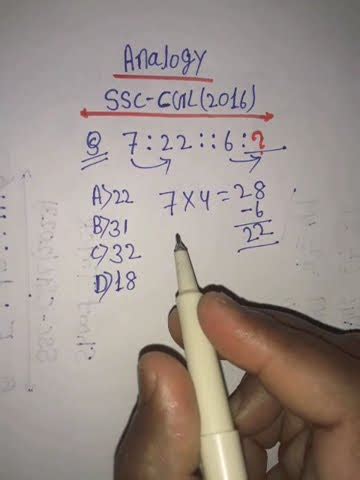 Analogy
SSC-CGL(2016)
Q 7:22::6:?
A>22
B>31
C>32
D>18
7×4=28
-6
22